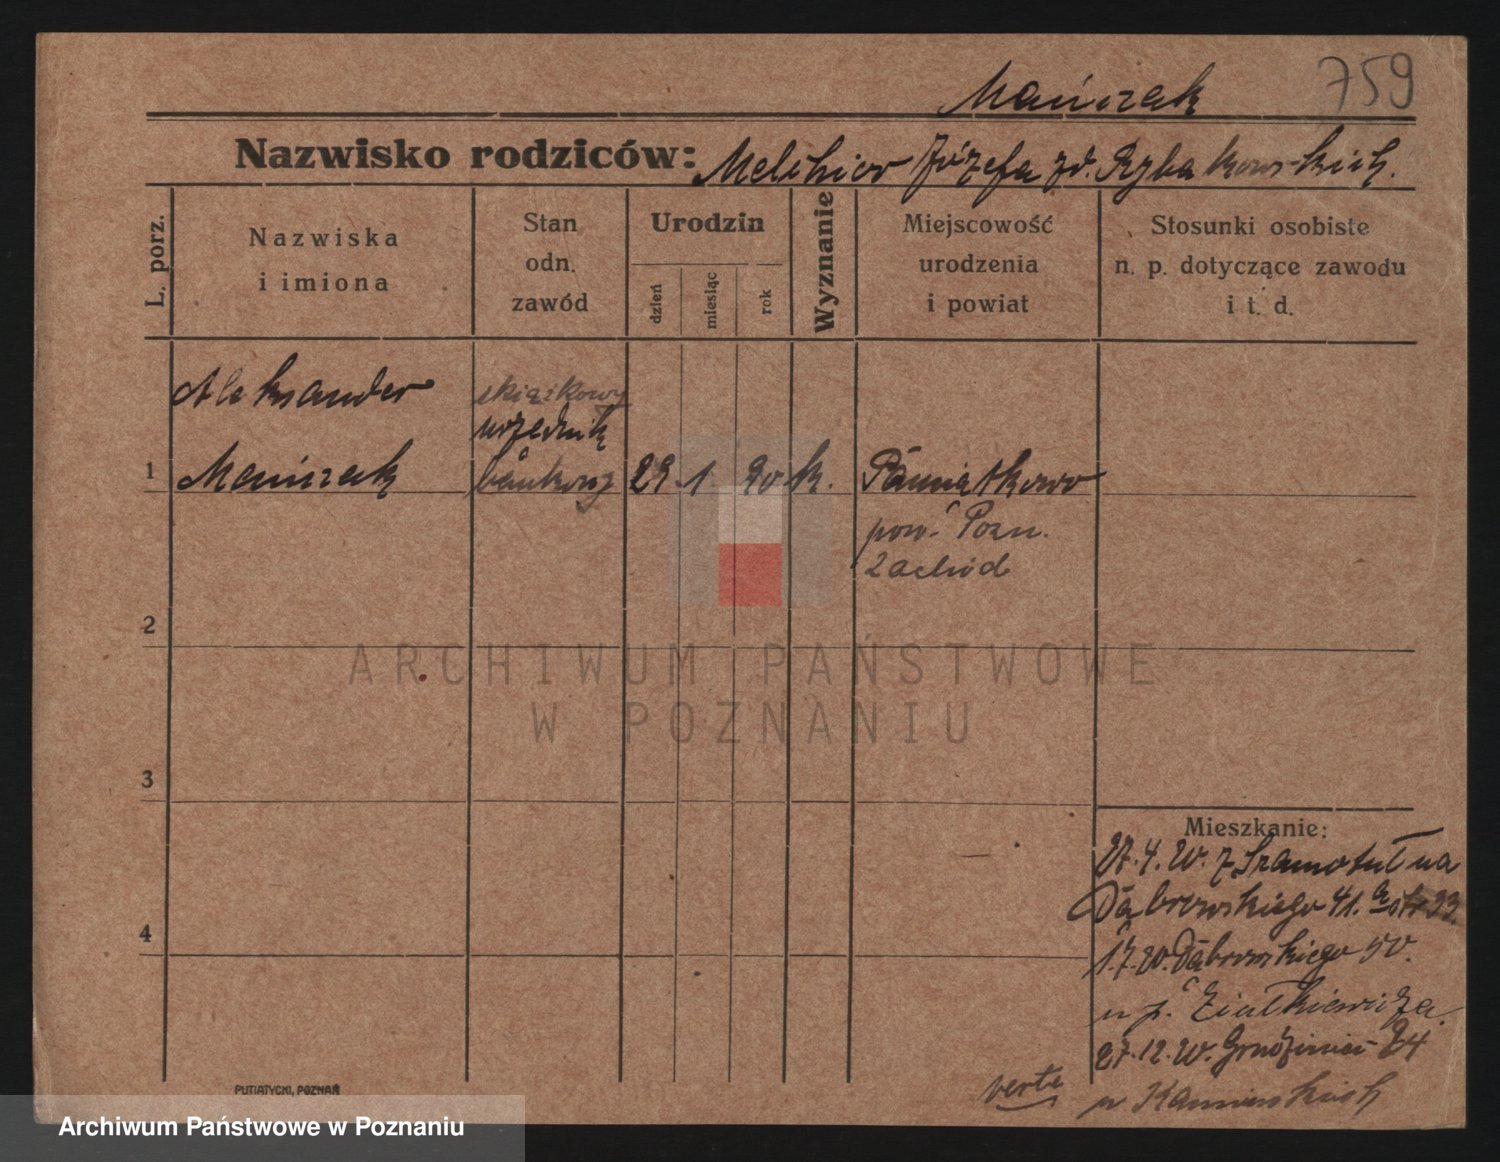 759
Mańczak
Nazwisko rodziców: Melchior Józefa zd. Rybakowskich.
L. porz.
Nazwiska
i imiona
Stan
odn.
zawód
Urodzin
dzień
miesiąc
rok
Wyznanie
Miejscowość
urodzenia
i powiat
Stosunki osobiste
n. p. dotyczące zawodu
i t. d.
Aleksander
książkowy
urzędnik
1 Mańczak bankowy 29 1 90 k. Pamiątkowo
pow. Pozn.
Zachód
2
ARCHIWUM PAŃSTWOWE
W POZNANIU
3
4
Mieszkanie:
27.4.20. z Szamotuł na
Dąbrowskiego 41.
1.7.20. Dąbrowskiego 50.
u p. Ziułkiewicza.
27.12.20. 24
verte
u Kamieńskich
PUTIATYCKI, POZNAŃ
Archiwum Państwowe w Poznaniu